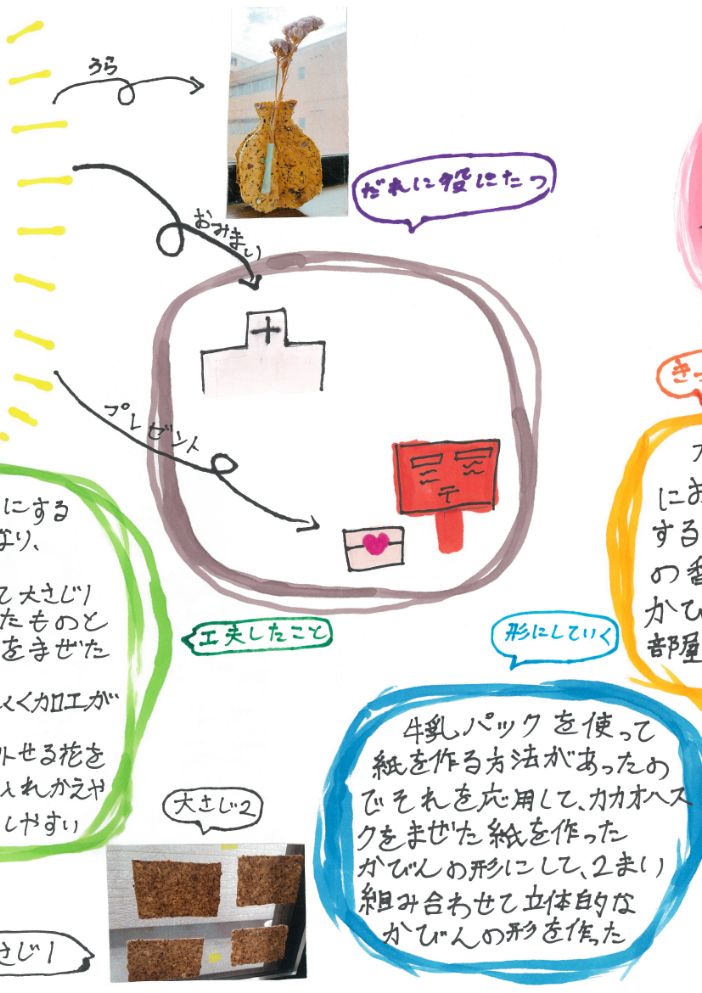 うら
だれに役にたつ
おみまい
プレゼント
〒
きっ
にする
なり、
て大さじ1
たものと
をまぜた
くカロエが
せる花を
入れかえや
しやすい
工夫したこと
形にしていく
にお
する
の香
かび
部屋
牛乳パックを使って
紙を作る方法があったの
でそれを応用して、カカオハス
クをまぜた紙を作った
かびんの形にして、2まい
組み合わせて立体的な
かびんの形を作った
大さじ2
さじ1